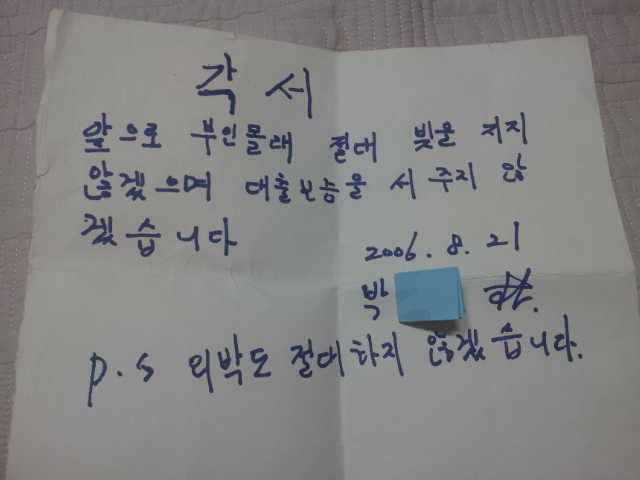 각서
앞으로 부인몰래 절대 빚을 지지
않겠으며 대출보능을 서 주지 않
겠습니다
2006. 8. 21
박
p.s 외박도 절대하지 않겠습니다.